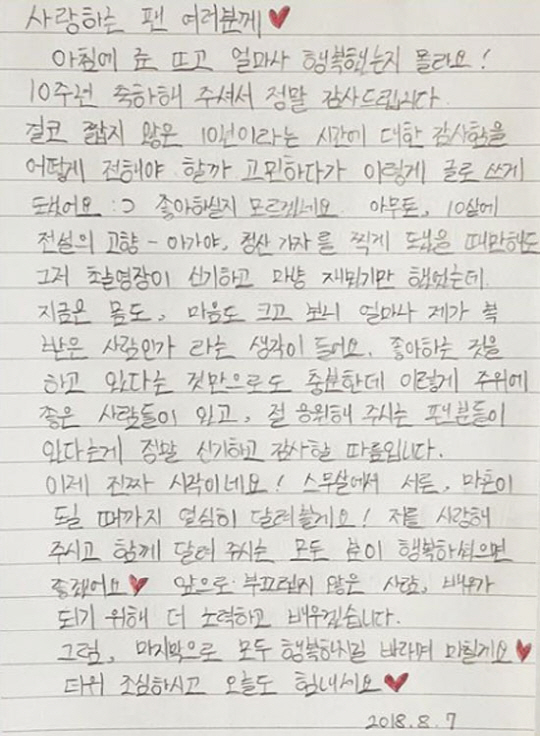 사랑하는 팬 여러분께 ♥
아침에 눈 뜨고 얼마나 행복했는지 몰라요!
10주년 축하해 주셔서 정말 감사드립니다.
결코 짧지 않은 10년이라는 시간에 대한 감사함을
어떻게 전해야 할까 고민하다가 이렇게 글로 쓰게
됐어요 :) 좋아하실지 모르겠네요. 아무튼, 10살에
전설의 고향 - 아가야, 청산 가자를 찍게 됐을 때만해도
그저 촬영장이 신기하고 마냥 재밌기만 했었는데.
지금은 몸도, 마음도 크고 보니 얼마나 제가 복
받은 사람인가 라는 생각이 들어요. 좋아하는 것을
하고 있다는 것만으로도 충분한데 이렇게 주위에
좋은 사람들이 있고, 절 응원해 주시는 팬분들이
있다는게 정말 신기하고 감사할 따름입니다.
이제 진짜 시작이네요! 스무살에서 서른, 마흔이
될 때까지 열심히 달려볼게요! 저를 사랑해
주시고 함께 달려 주시는 모두 분이 행복하셨으면
좋겠어요♥ 앞으로 부끄럽지 않은 사람, 배우가
되기 위해 더 노력하고 배우겠습니다.
그럼, 마지막으로 모두 행복하시길 바라며 마칠게요♥
더위 조심하시고 오늘도 힘내세요♥
2018.8.7